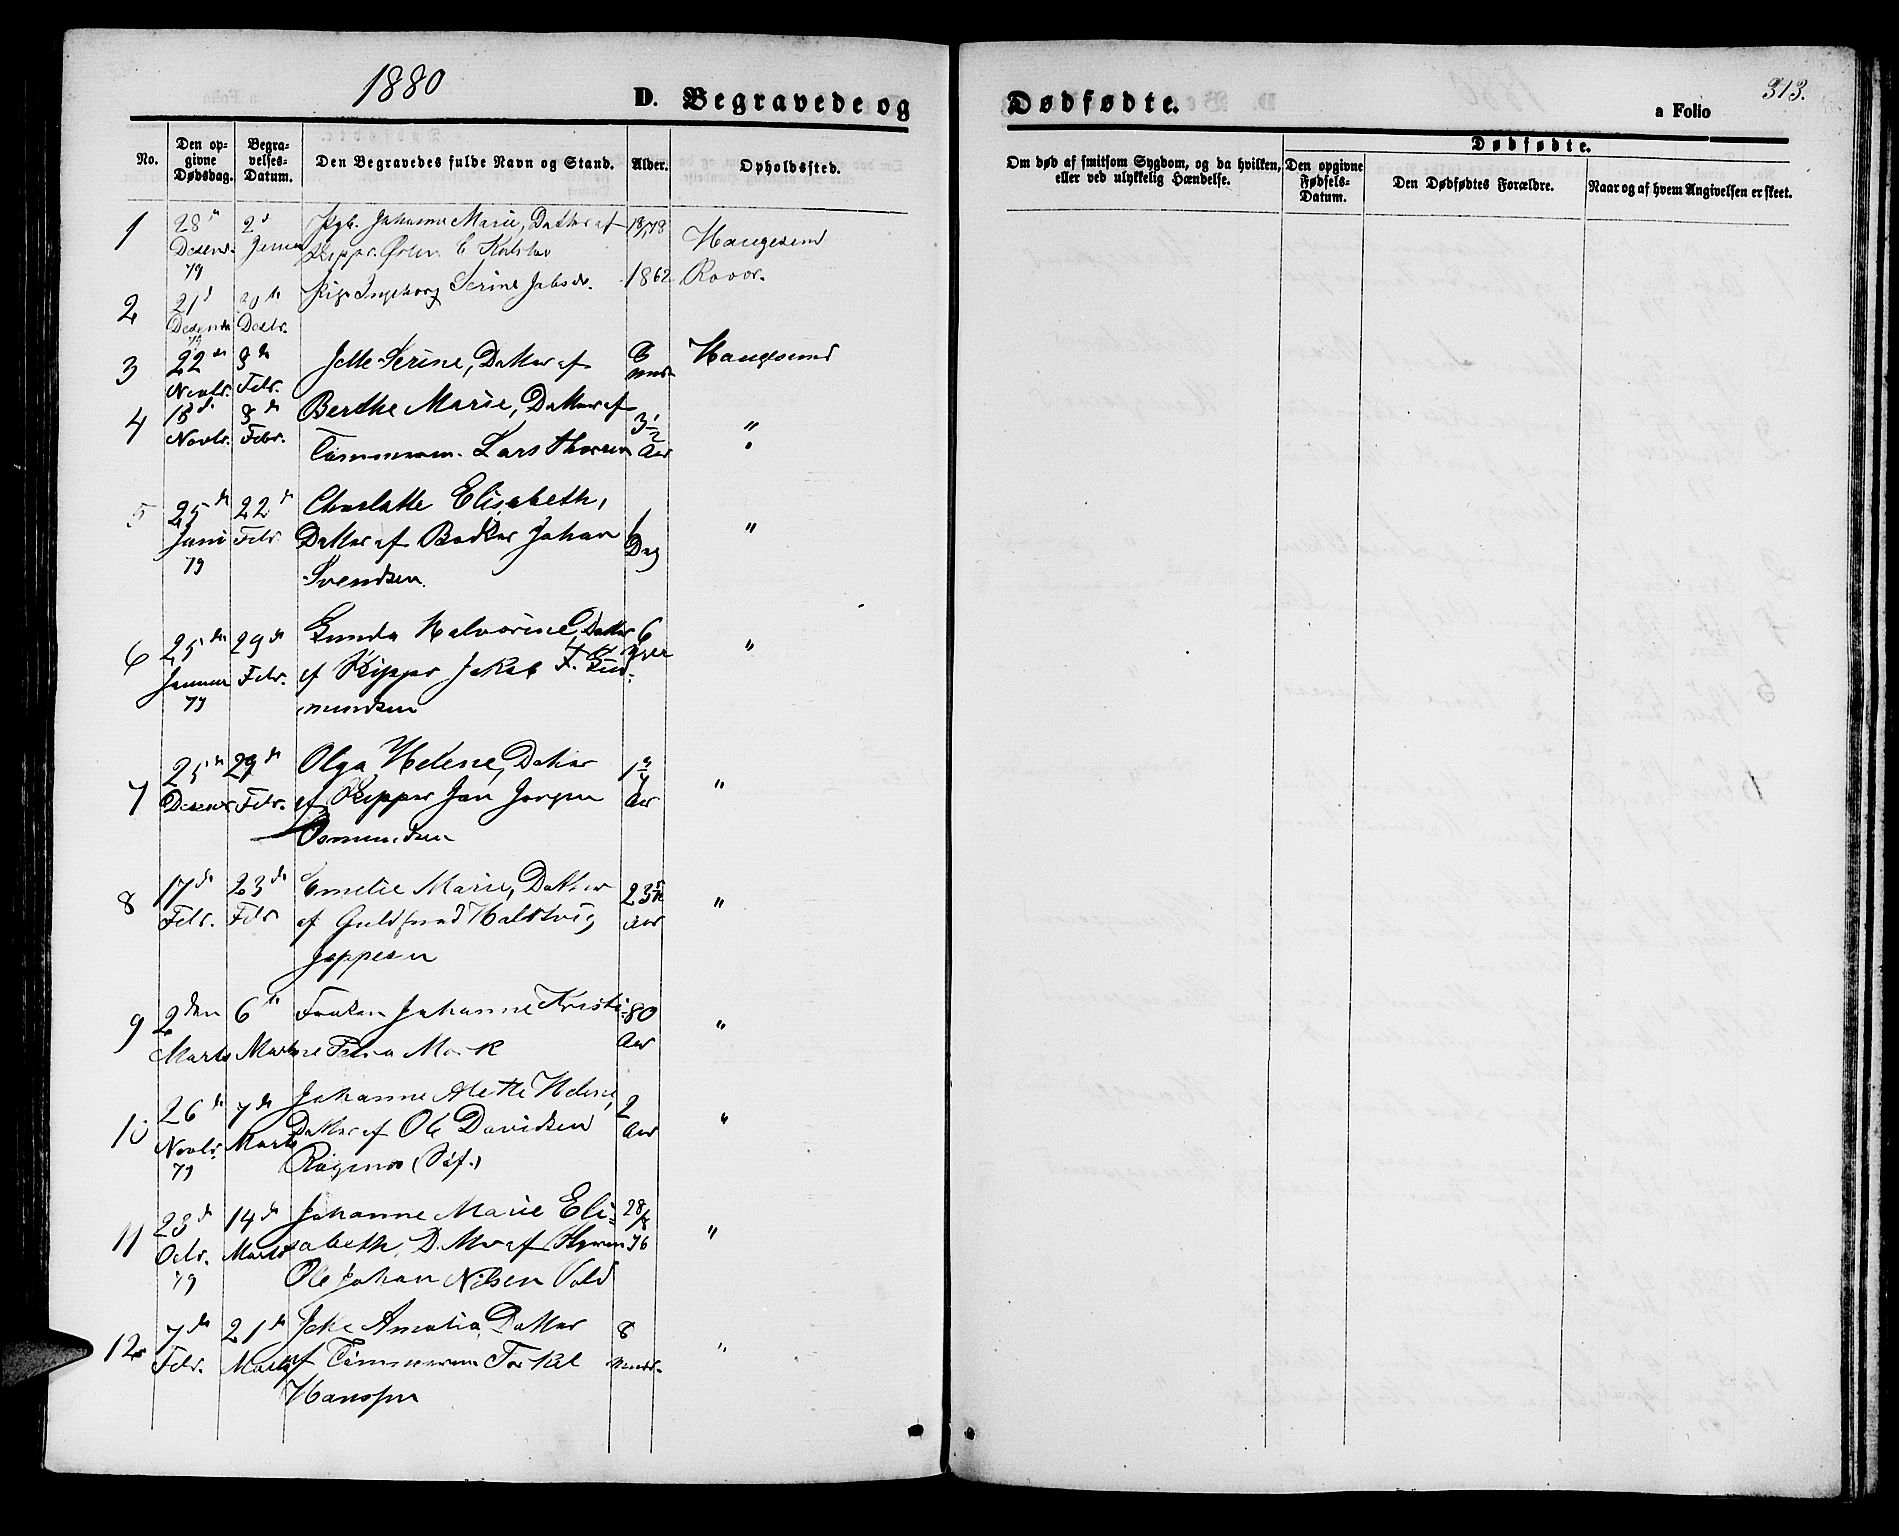 1880
D. Begravede og
Dødfødte.
313.
a Folio
No.
Den op-
givne
Dødsdag.
Begra-
velses-
Datum.
Den Begravedes fulde Navn og Stand.
Alder.
Opholdssted.
Om død af smitsom Sygdom, og da hvilken,
eller ved ulykkelig Hændelse.
Dødfødte.
Den opgivne
Fødsels-
Datum.
Den Dødfødtes Forældre.
Naar og af hvem Angivelsen er skeet.
1
28
79
2
Johanne Marie, Datter af
Haugesund
2
21
79
Pige Ingeborg Serine
1862
3
22de
Novbr.
8de
Febr.
Serine, Datter af
8
Haugesund
4
18de
Novbr.
8de
Febr.
Berthe Marie, Datter af
Tømmerm. Lars Thorsen
3½
Aar
"
5
25de
Juni
79
22de
Febr
Charlotte Elisabeth,
Datter af Bødker Johan
Svendsen.
1
Dag
"
6
25de
Januar
79
29de
Febr.
Gunda Halvorine, Datter
af Skipper Jakob F. Gud-
mundsen
6
Uger
"
7
25de
29de
Febr.
Olga Helene, Datter
af Skipper Jan Jørgen
Osmundsen
1¾
Aar
"
8
17de
Febr.
23de
Febr
Emelie Marie, Datter
af Guldsmed
Jeppesen
23
Aar
"
9
2den
Marts
6te
Marts
Frøken Johanne Kristi-
ne
80
Aar
"
10
26de
Novbr.
79
7de
Marts
Johanne Alette Helene,
Datter af Ole Davidsen
2
Aar
"
11
23de
79
14de
Marts
Johanne Marie Eli-
sabeth, Datter af
Ole Johan Nilsen
28/8
76
"
12
7de
Febr.
21de
Marts
Amalia, Datter
af Tømmerm Torkel
Hanssen
8
"